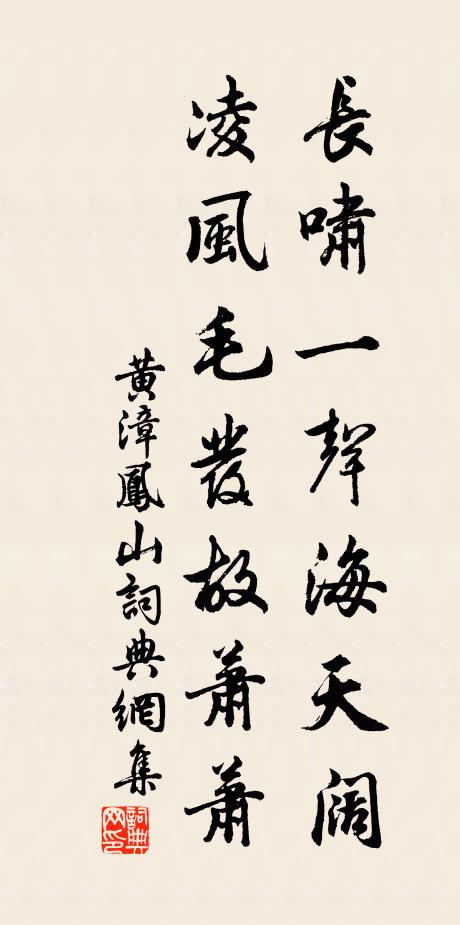 長嘯一聲海天闊
凌風毛發故蕭蕭
黃漳鳳山詞典網集
詞典網印